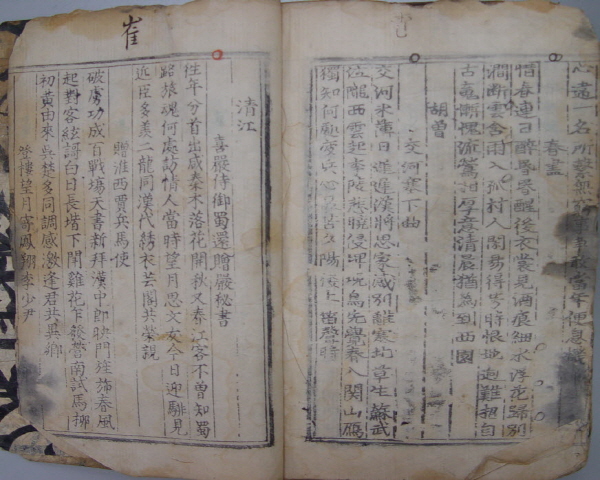 崔
一名所繫無窮事爭敢當年便息機
春盡
惜春連日醉昏昏醒後衣裳見酒痕細水浮花歸別
澗斷雲含雨入孤村人閑易得芳時恨地迥難招自
古魂慚愧流鶯相厚意清晨猶為到西園
胡曾
交河塞下曲
交河氷薄日遲遲漢將思家感別離塞北草生蘇武
泣隴西雲起李陵悲曉侵雉堞烏先覺春入關山鴈
獨知何處疲兵心最苦夕陽樓上笛聲時
清江
喜嚴侍御蜀還贈嚴秘書
往年分首出咸秦木落花開秋又春江客不曾知蜀
路旅魂何處訪情人當時望月思文友今日迎騑見
近臣多羨二龍同漢代繡衣芸閣共榮親
贈淮西賈兵馬使
破虜功成百戰場天書新拜漢中郎映門旌旆春風
起對客絃謌白日長堦下鬪雞花乍發營南試馬柳
初黃由來吳楚多同調感激逢君共異鄉
登樓望月寄鳳翔李少尹